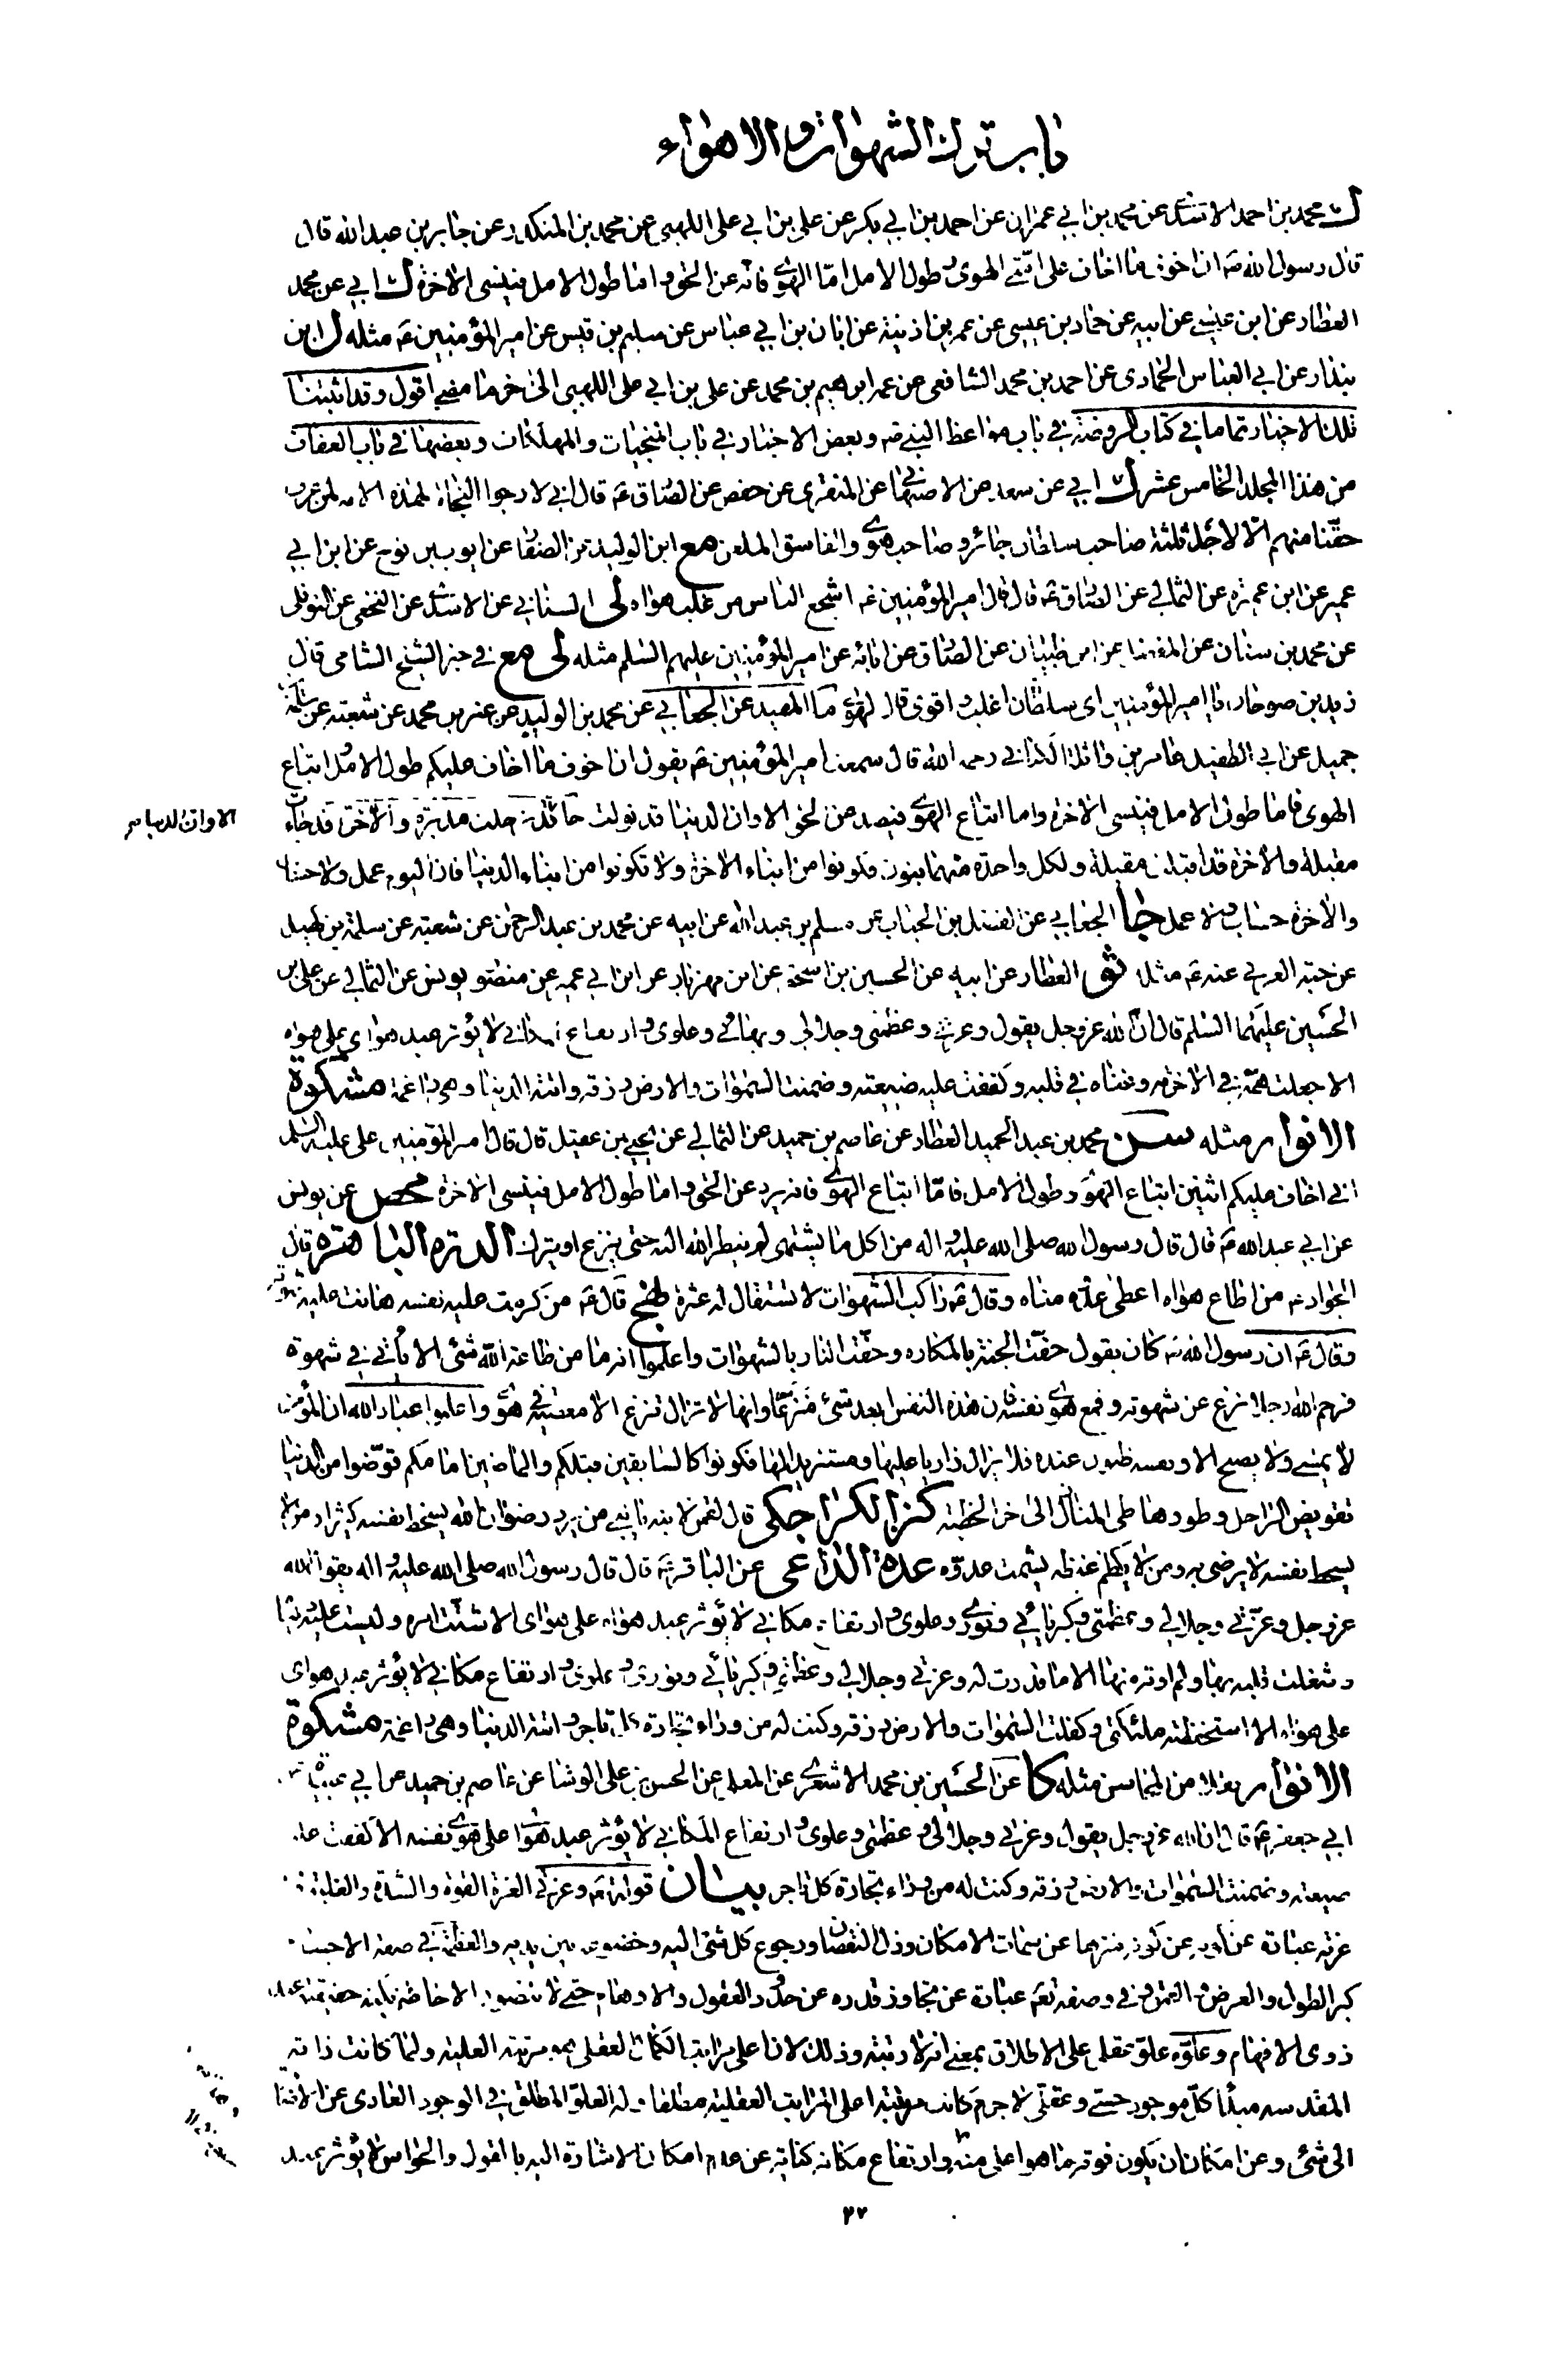 باب ترك الشهوات والاهواء
ل محمد بن احمد الاسدى عن محمد بن ابي عمران عن احمد بن ابي بكر عن علي بن ابي علي اللهبي عن محمد بن المنكدر عن جابر بن عبد الله قال
قال رسول الله ص ان اخوف ما اخاف على امتي الهوى وطول الامل اما الهوى فانه عن الحق واما طول الامل فينسى الاخرة ل ابي عن محمد
العطار عن ابن عيسى عن ابيه عن حماد بن عيسى عن عمر بن اذينة عن ابان بن ابي عياش عن سليم بن قيس عن امير المؤمنين ع مثله ل ابن
بندار عن ابي العباس الحمادى عن احمد بن محمد الشافعى عن عمه ابرهيم بن محمد عن علي بن ابي علي اللهبى الى اخر ما مضى اقول وقد اثبتنا
تلك الاخبار تماما في كتاب الروضة في باب مواعظ النبي ص وبعض الاخبار في باب المنجيات والمهلكات وبعضها في باب العفاف
من هذا المجلد الخامس عشر ل ابي عن سعد عن الاصبهاني عن المنقرى عن حفص عن الصادق ع قال اني لارجوا النجاة لهذه الامة لمن عرف
حقنا منهم الا لاحد ثلثة صاحب سلطان جائر وصاحب هوى والفاسق المعلن مع ابن الوليد عن الصفار عن ايوب بن نوح عن ابن ابي
عمير عن ابن عميرة عن الثمالي عن الصادق ع قال قال امير المؤمنين ع اشجع الناس من غلب هواه لى السناني عن الاسدى عن النخعى عن النوفلى
عن محمد بن سنان عن المفضل عن ابن ظبيان عن الصادق عن ابائه عن امير المؤمنين عليهم السلم مثله لى مع في خبر الشيخ الشامى قال
زيد بن صوحان يا امير المؤمنين اى سلطان اغلب واقوى قال الهوى ما المفيد عن الجعابي عن محمد بن الوليد عن عنبر بن محمد عن شعبة عن سلمة
جميل عن ابي الطفيل عامر بن واثلة الكناني رحمه الله قال سمعت امير المؤمنين ع يقول ان اخوف ما اخاف عليكم طول الامل واتباع
الهوى فاما طول الامل فينسى الاخرة واما اتباع الهوى فيصد عن الحق الا وان الدنيا قد تولت مدبرة والاخرة قد جاءت
الا وان الدنيا
مقبلة والاخرة قد اقبلت مقبلة ولكل واحدة منهما بنون فكونوا من ابناء الاخرة ولا تكونوا من ابناء الدنيا فان اليوم عمل ولا حساب
والاخرة حساب ولا عمل جا الجعابي عن الفضل بن الحباب عن مسلم بن عبد الله عن ابيه عن محمد بن عبد الرحمن عن شعبة عن سلمة بن كهيل
عن حبة العرني عنه ع مثله ثو العطار عن ابيه عن الحسين بن اسحق عن ابن مهزيار عن ابن ابي عمير عن منصور بن يونس عن الثمالي عن علي بن
الحسين عليهما السلم قال ان الله عز وجل يقول وعزتي وعظمتي وجلالي وبهائي وعلوى وارتفاع مكاني لا يؤثر عبد هواى على هواه
الا جعلت همه في الاخرة وغناه في قلبه وكففت عليه ضيعته وضمنت السموات والارض رزقه واتته الدنيا وهي راغمة مشكوة
الانوار مثله سن محمد بن عبد الحميد العطار عن عاصم بن حميد عن الثمالي عن يحيى بن عقيل قال قال امير المؤمنين علي عليه السلم
اني اخاف عليكم اثنين اتباع الهوى وطول الامل فاما اتباع الهوى فانه يرد عن الحق واما طول الامل فينسى الاخرة محص عن يونس
عن ابي عبد الله ع قال قال رسول الله صلى الله عليه واله من اكل ما يشتهى لم ينظر الله اليه حتى ينزع او يترك الدرة الباهرة قال
الجواد ع من اطاع هواه اعطى عدوه مناه وقال ع راكب الشهوات لا تستقال له عثرة نهج قال ع من كرمت عليه نفسه هانت عليه شهوته
وقال ع ان رسول الله ص كان يقول حفت الجنة بالمكاره وحفت النار بالشهوات واعلموا انه ما من طاعة الله شئ الا يأتي في شهوة
فرحم الله رجلا نزع عن شهوته وقمع هوى نفسه فان هذه النفس ابعد شئ منزعا وانها لا تزال تنزع الا معصية في هوى واعلموا عباد الله ان المؤمن
لا يمسى ولا يصبح الا ونفسه ظنون عنده فلا يزال زاريا عليها ومستزيدا لها فكونوا كالسابقين قبلكم والماضين امامكم قوضوا من الدنيا
تقويض الراحل وطووها طى المنازل الى اخر الخطبة كنز الكراجكى قال لقمن لابنه يا بني من يرد رضوان الله يسخط نفسه كثيرا ومن لا
يسخط نفسه لا يرضى به ومن لا يكظم غيظه يشمت عدوه عدة الداعى عن الباقر ع قال قال رسول الله صلى الله عليه واله يقول الله
عز وجل وعزتي وجلالي وعظمتي وكبريائي ونورى وعلوى وارتفاع مكاني لا يؤثر عبد هواه على هواى الا شتت امره ولبست عليه دنياه
وشغلت قلبه بها ولم اوته منها الا ما قدرت له وعزتي وجلالي وعظمتي وكبريائي ونورى وعلوى وارتفاع مكاني لا يؤثر عبد هواى
على هواه الا استحفظته ملئكتى وكفلت السموات والارض رزقه وكنت له من وراء تجارة كل تاجر واتته الدنيا وهي راغمة مشكوة
الانوار نقلا من المحاسن مثله كا عن الحسين بن محمد الاشعرى عن المعلى عن الحسن بن علي الوشا عن عاصم بن حميد عن ابي عبيدة
ابي جعفر ع قال ان الله عز وجل يقول وعزتي وجلالي وعظمتي وعلوى وارتفاع المكاني لا يؤثر عبد هواى على هوى نفسه الا كففت
ضيعته وضمنت السموات والارض رزقه وكنت له من وراء تجارة كل تاجر بيان قوله تع وعزتي العزة القوة والشدة والغلبة
عزته عبارة عن كونه منزها عن سمات الامكان وذل النقصان ورجوع كل شئ اليه وخضوعه بين يديه والعظمة في صفة الاجسام
كبر الطول والعرض والعمق وفي وصفه تعم عبارة عن تجاوز قدره عن حدود العقول والاوهام حتى لا تتصور الاحاطة بكنه حقيقته عند
ذوى الافهام وعلوه علو عقلى على الاطلاق بمعنى انه لا رتبة وذلك لان اعلى مراتب الكمال العقلى هو مرتبة العلية ولما كانت ذاته
المقدسه مبدأ كل موجود حسي وعقلي لا جرم كانت مرتبته اعلى المراتب العقلية مطلقا وله العلو المطلق في الوجود العارى عن الاضافة
الى شئ وعن امكان ان يكون فوقه ما هو اعلى منه وارتفاع مكانه كناية عن عدم امكان الاشارة اليه بالقول والحواس لا يؤثر عبد
٢٧